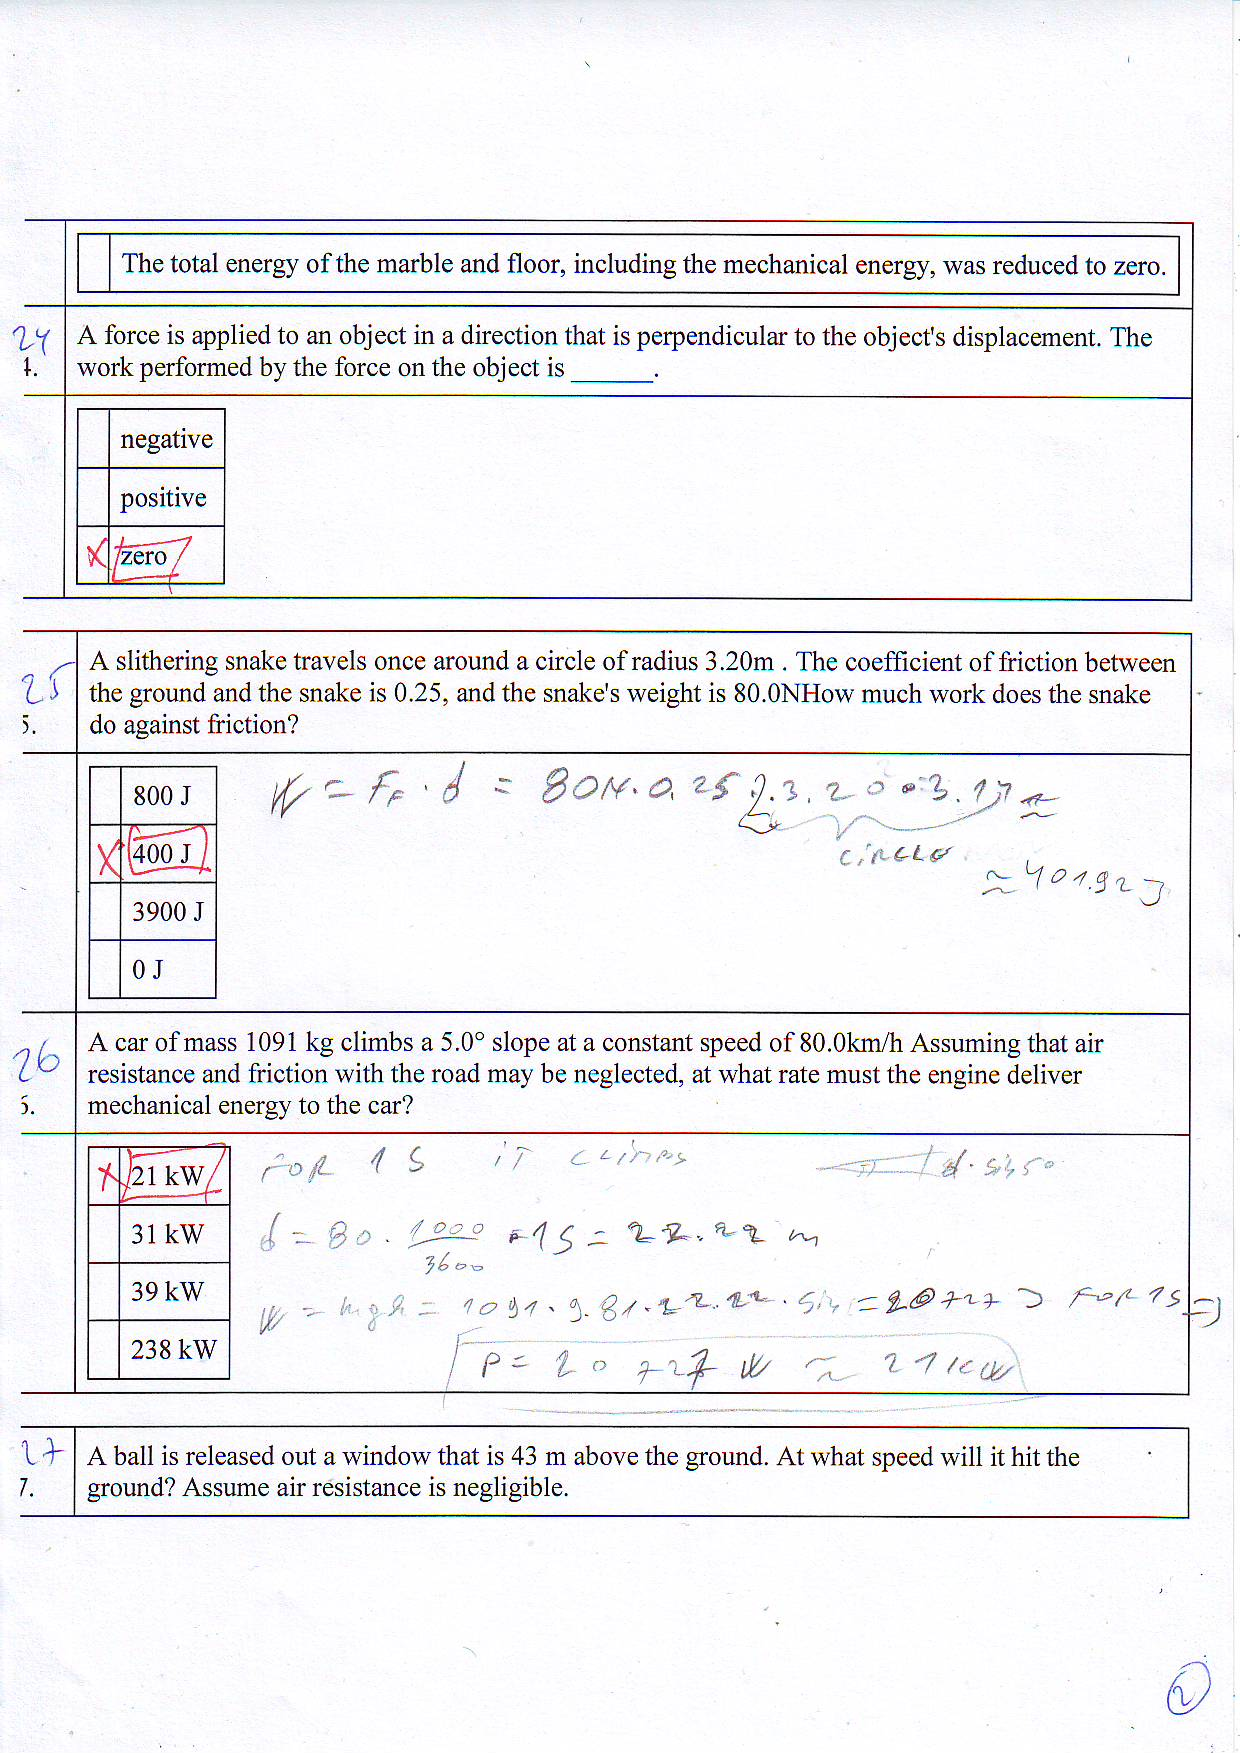 The total energy of the marble and floor, including the mechanical energy, was reduced to zero.
24
4.
A force is applied to an object in a direction that is perpendicular to the object's displacement. The
work performed by the force on the object is ______.
negative
positive
X zero
25
5.
A slithering snake travels once around a circle of radius 3.20m . The coefficient of friction between
the ground and the snake is 0.25, and the snake's weight is 80.0NHow much work does the snake
do against friction?
800 J
W = FF · d = 80N. 0.25 2.3.20 · 3.14 ≈
X 400 J
CIRCLE
≈ 401.92 J
3900 J
0 J
26
5.
A car of mass 1091 kg climbs a 5.0° slope at a constant speed of 80.0km/h Assuming that air
resistance and friction with the road may be neglected, at what rate must the engine deliver
mechanical energy to the car?
X 21 kW
FOR 1 S IT CLIMBS
31 kW
d = 80 · 1000/3600 · 1S = 22.22 m
39 kW
W = mgh = 1091 · 9.81 · 22.22 · = 20727 J FOR 1S =>
238 kW
P = 20 727 W ≈ 21 kW
27
7.
A ball is released out a window that is 43 m above the ground. At what speed will it hit the
ground? Assume air resistance is negligible.
2